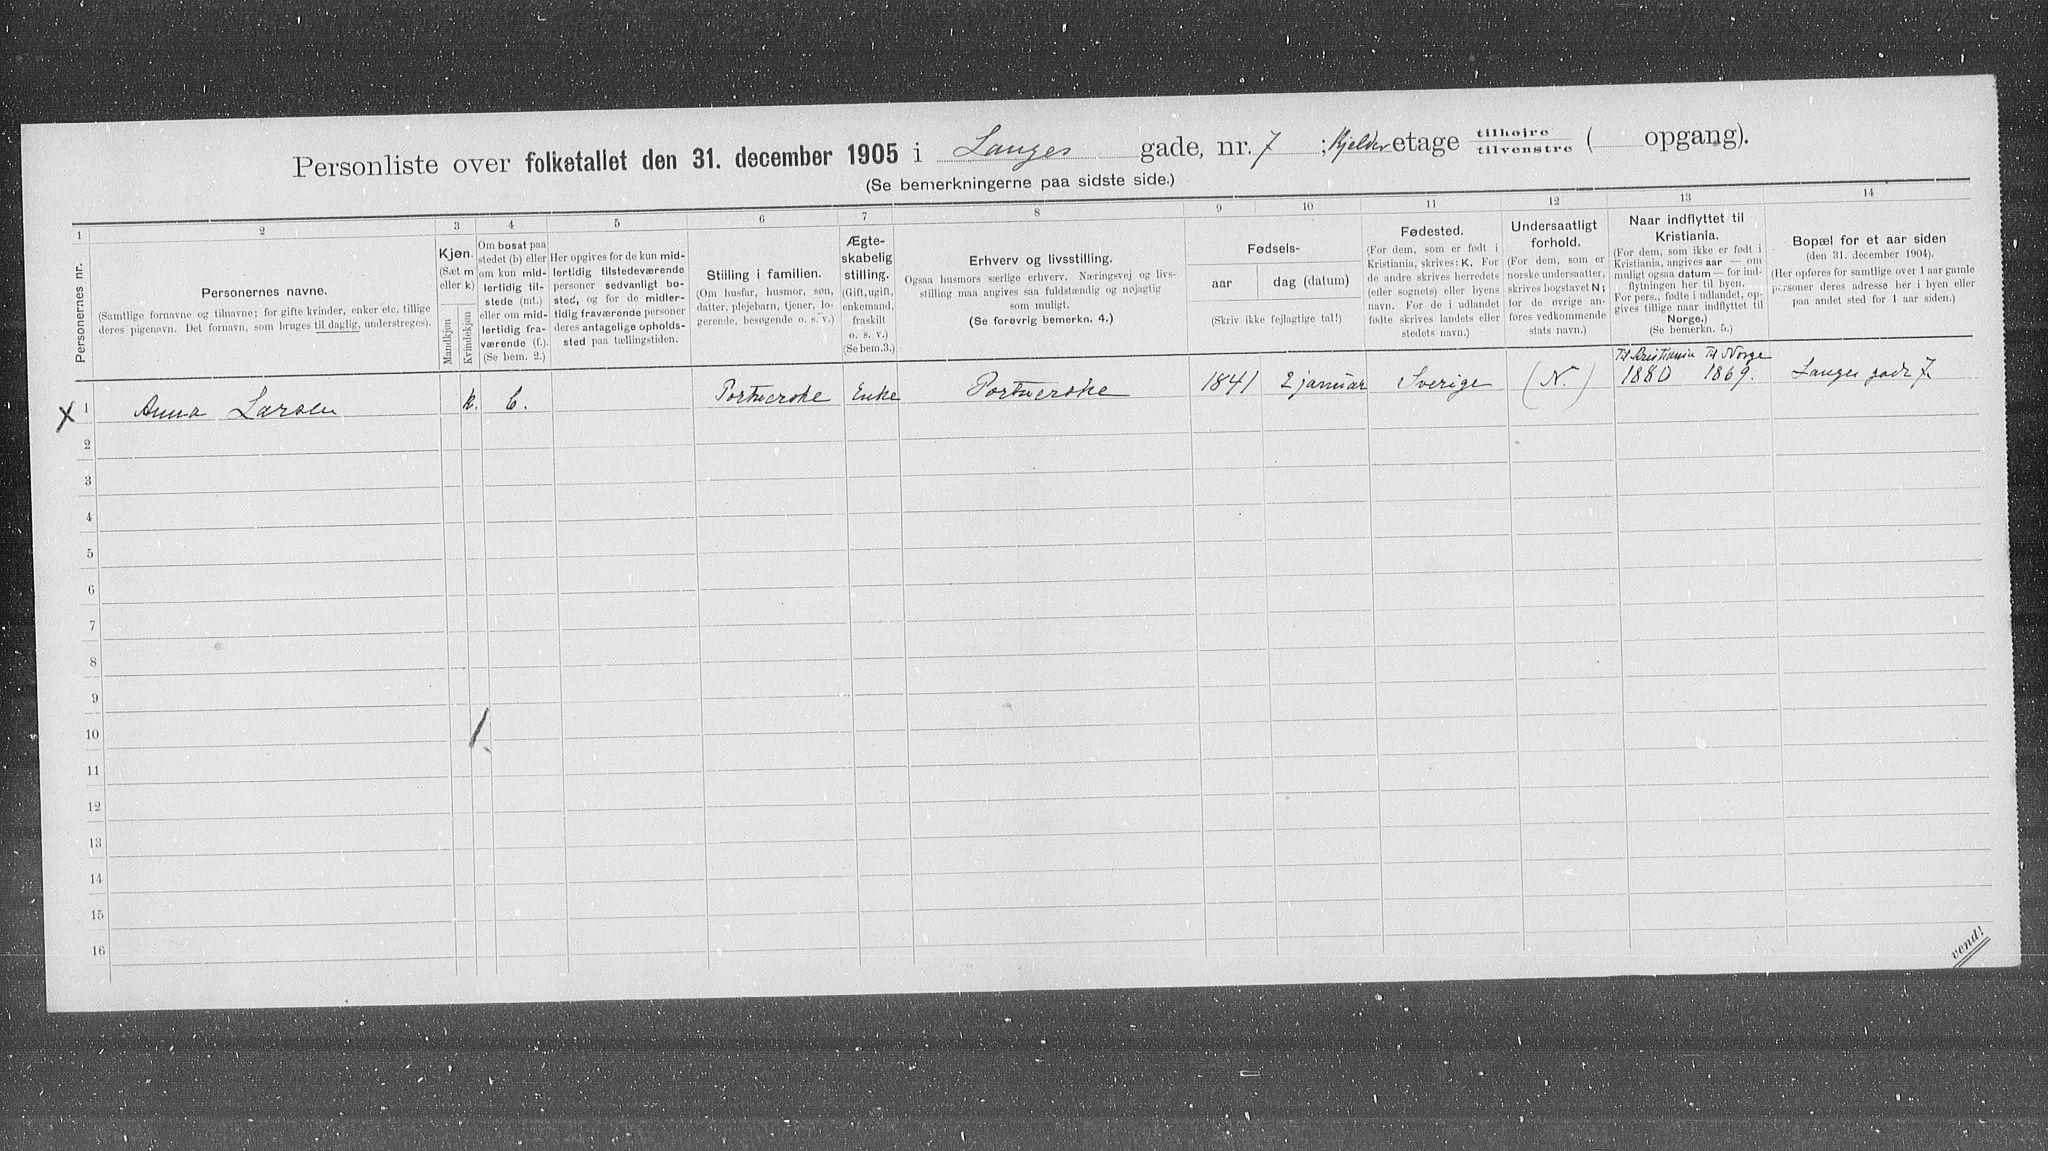 Personliste over folketallet den 31. december 1905 i Langes gade, nr. 7 ; Kjelder etage tilhøjre tilvenstre ( opgang).
(Se bemerkningerne paa sidste side.)
1 2 3 4 5 6 7 8 9 10 11 12 13 14
Personernes nr.
Personernes navne.
(Samtlige fornavne og tilnavne; for gifte kvinder, enker etc. tillige
deres pigenavn. Det fornavn, som bruges til daglig, understreges).
Kjøn.
(Sæt m
eller k)
Mandkjøn
Kvindekjøn
Om bosat paa
stedet (b) eller
om kun mid-
lertidig til-
stede (mt.)
eller om mid-
lertidig fra-
værende (f.).
(Se bem. 2.)
Her opgives for de kun mid-
lertidig tilstedeværende
personer sedvanligt bo-
sted, og for de midler-
tidig fraværende personer
deres antagelige opholds-
sted paa tællingstiden.
Stilling i familien.
(Om husfar, husmor, søn,
datter, plejebarn, tjener, lo-
gerende, besøgende o. s. v.)
Ægte-
skabelig
stilling.
(Gift, ugift,
enkemand,
fraskilt
o. s. v.)
(Se bem.3.)
Erhverv og livsstilling.
Ogsaa husmors særlige erhverv. Næringsvej og livs-
stilling maa angives saa fuldstændig og nøjagtig
som muligt.
(Se forøvrig bemerkn. 4.)
Fødsels-
aar
dag (datum)
(Skriv ikke fejlagtige tal!)
Fødested.
(For dem, som er født i
Kristiania, skrives: K. For
de andre skrives herredets
(eller sognets) eller byens
navn. For de i udlandet
fødte skrives landets eller
stedets navn.)
Undersaatligt
forhold.
(For dem, som er
norske undersaatter,
skrives bogstavet N;
for de øvrige an-
føres vedkommende
stats navn.)
Naar indflyttet til
Kristiania.
(For dem, som ikke er født i
Kristiania, angives aar — om
muligt ogsaa datum — for ind-
flytningen her til byen.
For pers., fødte i udlandet, op-
gives tillige naar indflyttet til
Norge.)
(Se bemerkn. 5.)
Bopæl for et aar siden
(den 31. december 1904).
(Her opføres for samtlige over 1 aar gamle
personer deres adresse her i byen eller
paa andet sted for 1 aar siden.)
Til Kristiania Til Norge
x 1 Anna Larsen k. b. Portnerske Enke Portnerske 1841 2 januar Sverige (N.) 1880 1869. Langes gade 7
2
3
4
5
6
7
8
9
10
1.
11
12
13
14
15
16
vend!